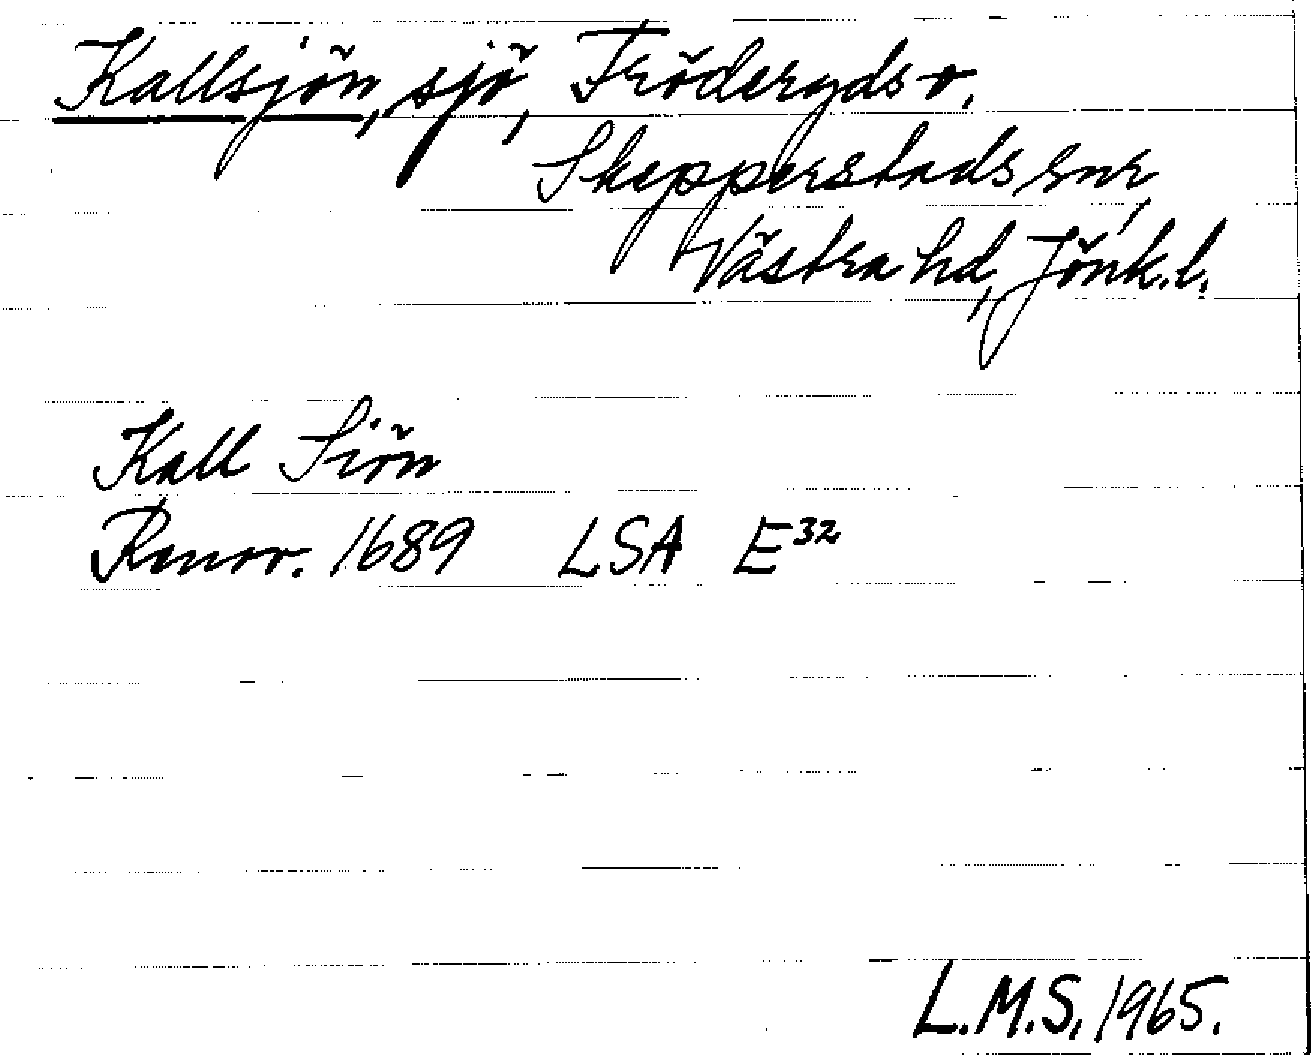 Kallsjön, sjö, Fröderyds o.
Skepperstads snr,
Västra hd, Jönk.l.
Kall Siön
Renov. 1689 LSA E³²
L.M.S. 1965.